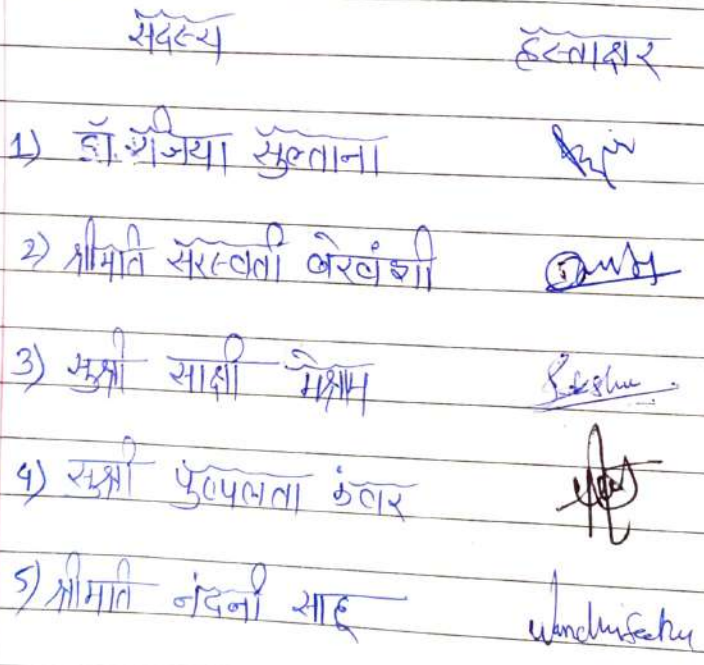 सदस्य हस्ताक्षर
1) डॉ. रजिया सुल्ताना
2) श्रीमति सरस्वती बेरवंशी
3) सुश्री साक्षी मेश्राम
4) सुश्री पुष्पलता कंवर
5) श्रीमति नंदनी साहू